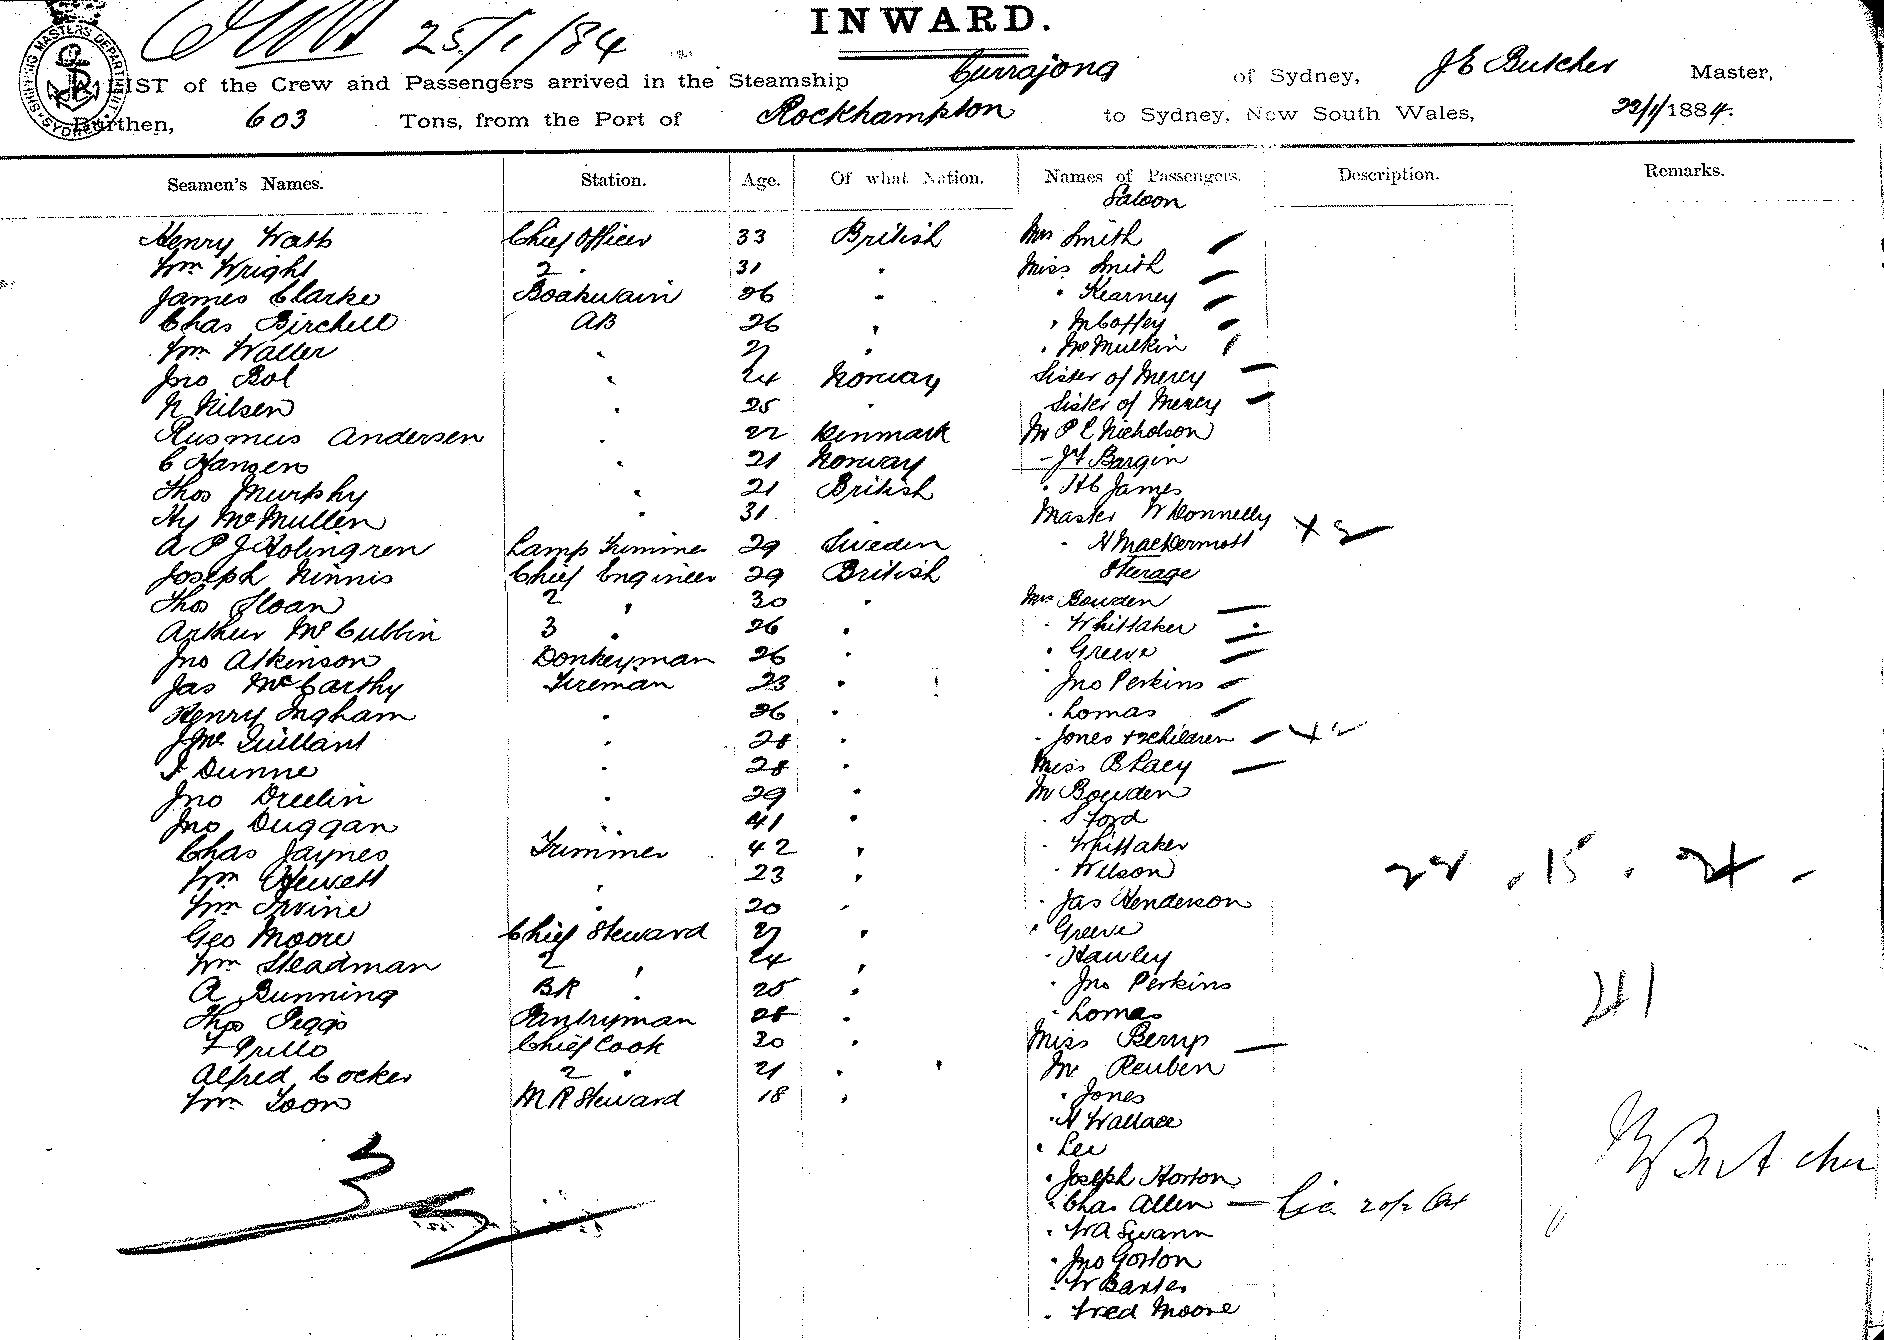 INWARD.
25/1/84
LIST of the Crew and Passengers arrived in the Steamship Currajong of Sydney, J E Butcher Master,
Burthen, 603 Tons, from the Port of Rockhampton to Sydney, New South Wales, 22/1/1884.
SHIPPING MASTERS DEPARTMENT SYDNEY
Seamen's Names. Station. Age. Of what Nation. Names of Passengers. Description. Remarks.
Saloon
Henry Watts Chief Officer 33 British Mrs Smith
Wm Wright 2 " 31 " Miss Smith
James Clarke Boatswain 26 " " Kearney
Chas Birchell AB 26 " " McCaffey
Wm Waller " 27 " " McMulkin
Jno Bol " 24 Norway Sister of Mercy
N Nilsen " 25 " Sister of Mercy
Rasmus Andersen " 22 Denmark Mr P C Nicholson
C Hansen " 21 Norway " Bargin
Thos Murphy " 21 British " H C James
Hy McMullen " 31 Master W Donnelly
A P J Holingren Lamp Trimmer 29 Sweden " A MacDermott + 2
Joseph Ninnis Chief Engineer 29 British Sterage
Thos Sloan 2 " 30 " Mrs Bowden
Arthur McCubbin 3 " 26 " " Whittaker
Jno Atkinson Donkeyman 26 " " Greeve
Jas McCarthy Fireman 23 " " Jno Perkins
Henry Ingham " 26 " " Lomas
J McQuillant " 28 " " Jones + 2 children + 2
J Dunne " 28 " Miss B Lacy
Jno Dreelin " 29 " Mr Bowden
Jno Duggan " 41 " " S Ford
Chas Jaynes Trimmer 42 " " Whittaker
Wm Hewett " 23 " " Wilson 22 . 15 . 4
Wm Irvine " 20 " " Jas Henderson
Geo Moore Chief Steward 27 " " Greeve
Wm Steadman 2 " 24 " " Hawley
A Bunning BR " 25 " " Jno Perkins 41
Thos Peggs Pantryman 28 " " Lomas
F Prello Chief Cook 30 " Miss Berry
Alfred Cocker 2 " 21 " Mr Reuben
Wm Toon M R Steward 18 " " Jones
" A Wallace
" Lee
Butcher
" Joseph Horton
" Chas Allen
" W A Swann
" Jno Gorton
" W Baxter
" Fred Moore